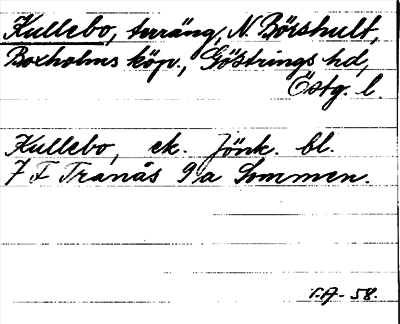 Kullebo, terräng, N. Börshult,
Boxholms köp., Göstrings hd,
Östg. l.
Kullebo, ek. Jönk. bl.
7 F Tranås 9 a Sommen.
I.A - 58.